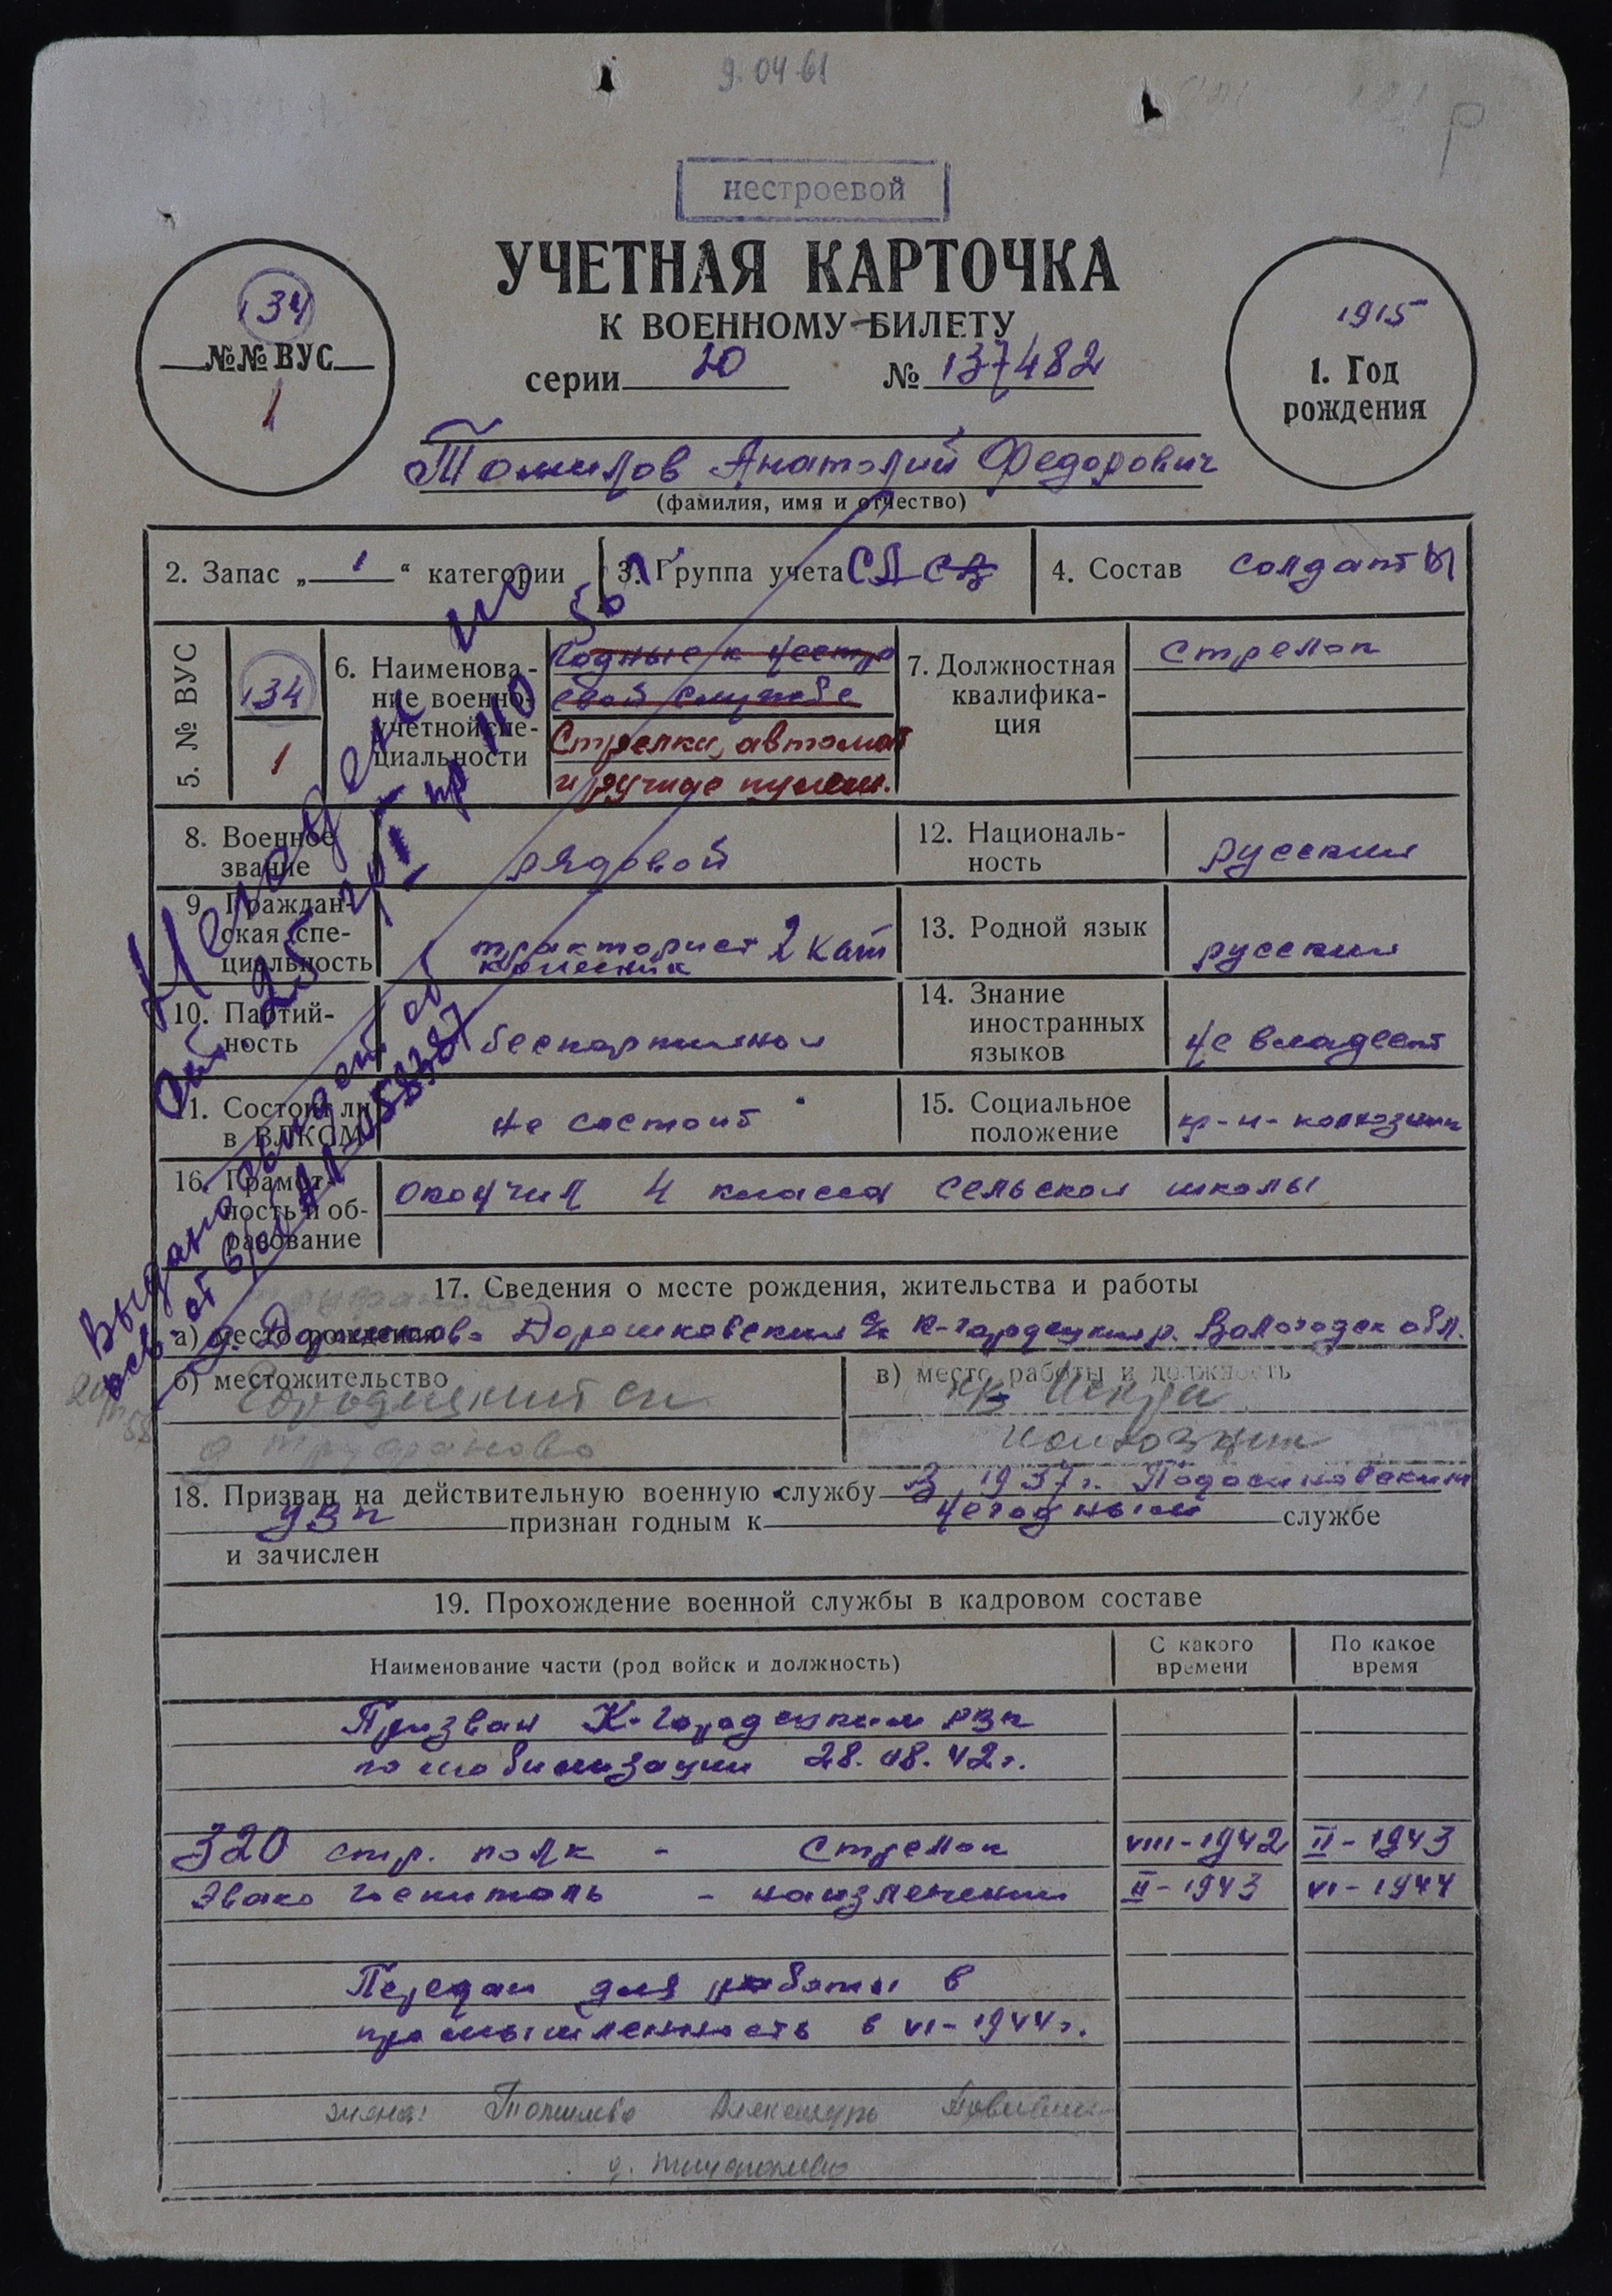 9.04.61
Р
нестроевой
УЧЕТНАЯ КАРТОЧКА
К ВОЕННОМУ БИЛЕТУ
серии 20 № 137482
134
№№ ВУС
1
1915
1. Год
рождения
Томилов Анатолий Федорович
(фамилия, имя и отчество)
2. Запас „ 1 “ категории
3. Группа учета СА
4. Состав солдаты
5. № ВУС
134
1
6. Наименова-
ние военно-
учетной спе-
циальности
Годные к нестро
евой службе
Стрелки, автомат
и ручные пулем.
7. Должностная
квалифика-
ция
Стрелок
8. Военное
звание
рядовой
12. Националь-
ность
русский
9. Граждан-
ская спе-
циальность
тракторист 2 кат
13. Родной язык
русский
10. Партий-
ность
беспартийный
14. Знание
иностранных
языков
не владеет
11. Состоит ли
в ВЛКСМ
не состоит
15. Социальное
положение
кр-н-колхозник
16. Грамот-
ность и об-
разование
окончил 4 класса сельской школы
Негоден по
ст. 25 гр I пр 110
Выдано свидет. об
осв. от в/об
17. Сведения о месте рождения, жительства и работы
а) место рождения Дорожковский с/с К-Городецкий р. Вологодск обл.
б) местожительство
Городецкий с/с
д Труфаново
в) место работы и должность
к-з Искра
колхозник
18. Призван на действительную военную службу В 1937г. Подосиновским
РВК признан годным к негодный службе
и зачислен
19. Прохождение военной службы в кадровом составе
Наименование части (род войск и должность)
С какого
времени
По какое
время
Призван К-Городецким РВК
по мобилизации 28.08.42г.
320 стр. полк - Стрелок VIII-1942 II-1943
Эвако госпиталь - на излечении II-1943 VI-1944
Передан для работы в
промышленность в VI-1944г.
жена: Томилова Александра